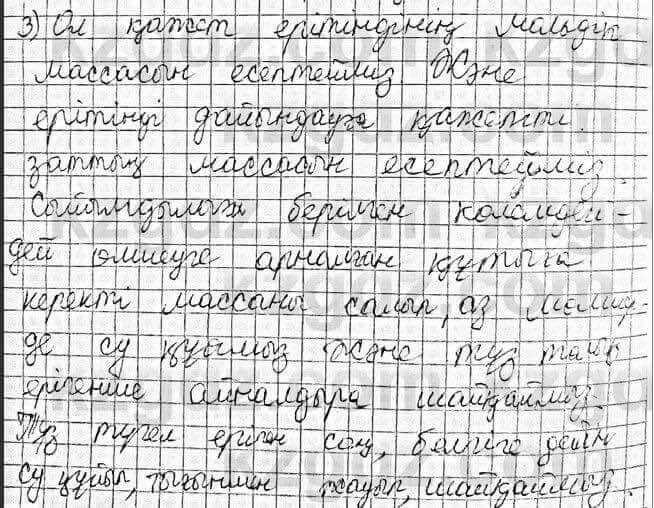 3) Ол қажет ерітіндінің мольдік
массасын есептейміз. Және
ерітінді дайындауға қажетті
заттың массасын есептейміз.
Сыйымдылығы берілген көлемдей-
дей өлшеуге арналған құтыға
керекті массаны салып, аз мөлшер-
де су құямыз және тұз толық
ерігенше айналдыра шайқаймыз.
Тұз түгел еріген соң, белгіге дейін
су құйып, тығынмен жауып, шайқаймыз.